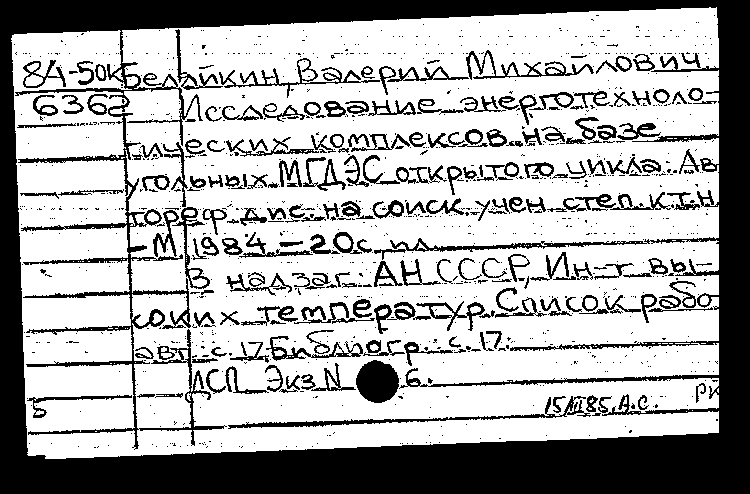 84-50к Белайкин, Валерий Михайлович.
6362 Исследование энерготехноло-
гических комплексов на базе
угольных МГДЭС открытого цикла: Ав
тореф дис. на соиск учен степ. к.т.н
-М, 1984. - 20с, ил
В надзаг: АН СССР, Ин-т вы-
соких температур. Список рабо
авт. с 17. Библиогр.: с. 17.
ДСП Экз N 6.
Б 15/III 85. А.С. РК